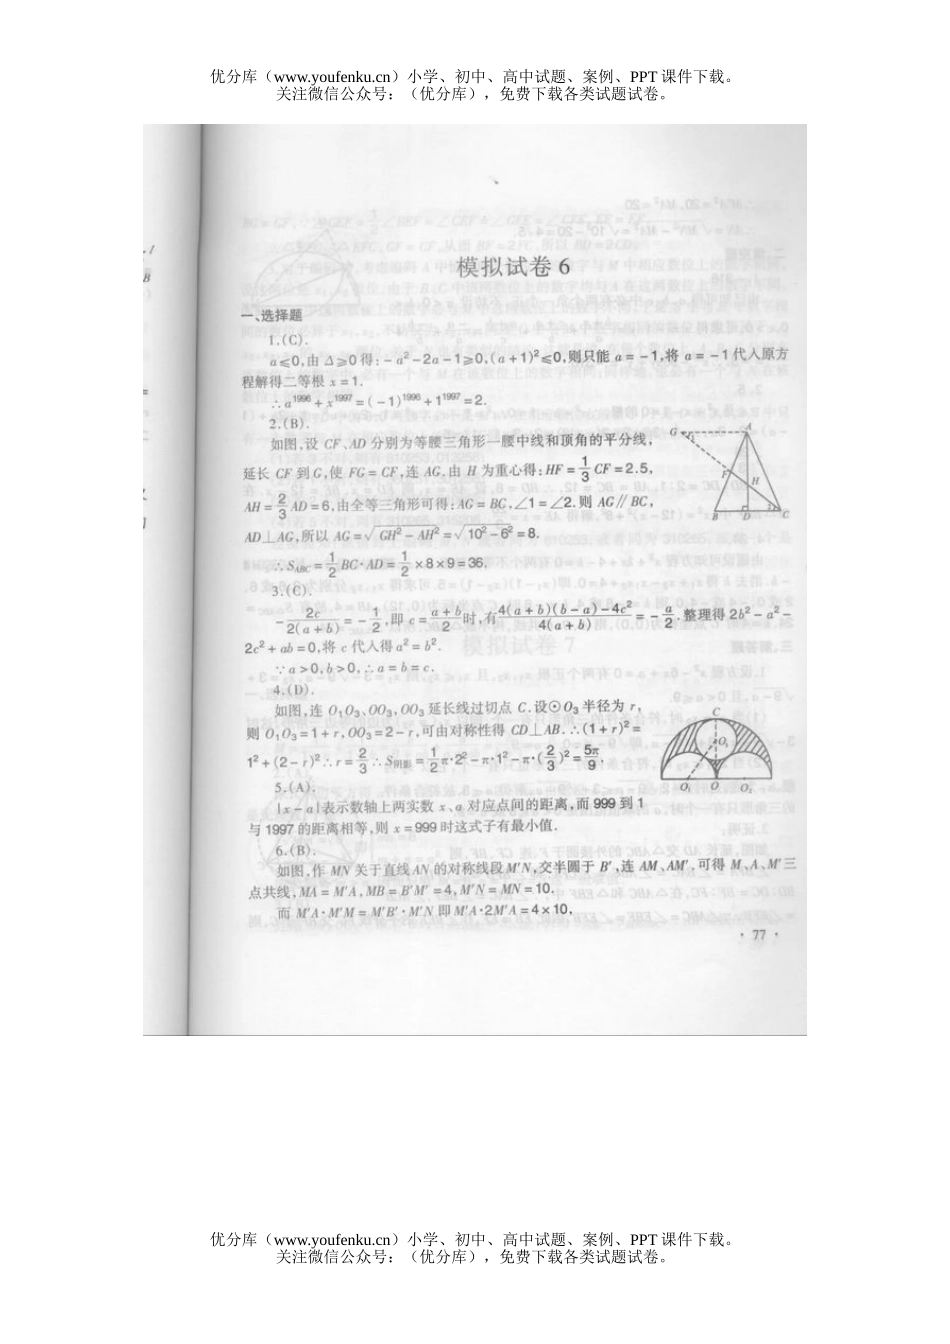 优分库（www.youfenku.cn）小学、初中、高中试题、案例、PPT 课件下载。
关注微信公众号：（优分库），免费下载各类试题试卷。
模拟试卷 6
一、选择题
1.(C).
a≤0,由 Δ≥0 得: -a²-2a-1≥0,(a+1)²≤0,则只能 a=-1,将 a=-1 代入原方
程解得二等根 x=1.
∴a¹⁹⁹⁶+x¹⁹⁹⁷=(-1)¹⁹⁹⁶+1¹⁹⁹⁷=2.
2.(B).
如图,设 CF、AD 分别为等腰三角形一腰中线和顶角的平分线,
延长 CF 到 G,使 FG=CF,连 AG.由 H 为重心得: HF=1/3 CF=2.5,
AH=2/3 AD=6,由全等三角形可得: AG=BC,∠1=∠2.则 AG∥BC,
AD⊥AG,所以 AG=√(GH²-AH²)=√(10²-6²)=8.
∴S_ABC=1/2 BC·AD=1/2×8×9=36.
G
A
F
H
B
D
C
3.(C).
-2c/2(a+b)=-1/2,即 c=(a+b)/2 时,有 (4(a+b)(b-a)-4c²)/4(a+b)=-a/2.整理得 2b²-a²-
2c²+ab=0,将 c 代入得 a²=b².
∵a>0,b>0,∴a=b=c.
4.(D).
如图,连 O₁O₃、OO₃,OO₃ 延长线过切点 C.设⊙O₃ 半径为 r,
则 O₁O₃=1+r,OO₃=2-r,可由对称性得 CD⊥AB.∴(1+r)²=
1²+(2-r)²∴r=2/3 ∴S阴影=1/2π·2²-π·1²-π·(2/3)²=5π/9.
C
O₃
O₁
O
O₂
5.(A).
|x-a|表示数轴上两实数 x、a 对应点间的距离,而 999 到 1
与 1997 的距离相等,则 x=999 时这式子有最小值.
6.(B).
如图,作 MN 关于直线 AN 的对称线段 M′N,交半圆于 B′,连 AM、AM′,可得 M、A、M′三
点共线,MA=M′A,MB=B′M′=4,M′N=MN=10.
而 M′A·M′M=M′B′·M′N 即 M′A·2M′A=4×10,
· 77 ·
优分库（www.youfenku.cn）小学、初中、高中试题、案例、PPT 课件下载。
关注微信公众号：（优分库），免费下载各类试题试卷。